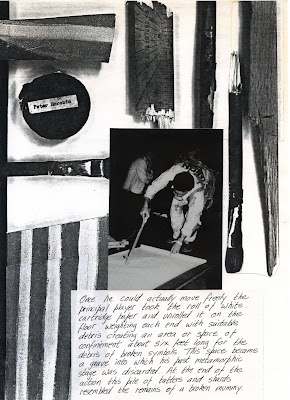 Peter Horobin
Once he could actually move freely the
principal player took the roll of white
cartridge paper and unrolled it on the
floor weighting each end with suitable
debris creating an area or space of
confinement about six feet long for the
debris of broken symbols. This space became
a grave into which his past metamorphosis
stage was discarded. At the end of the
action this pile of batters and shards
resembled the remains of a broken mummy.